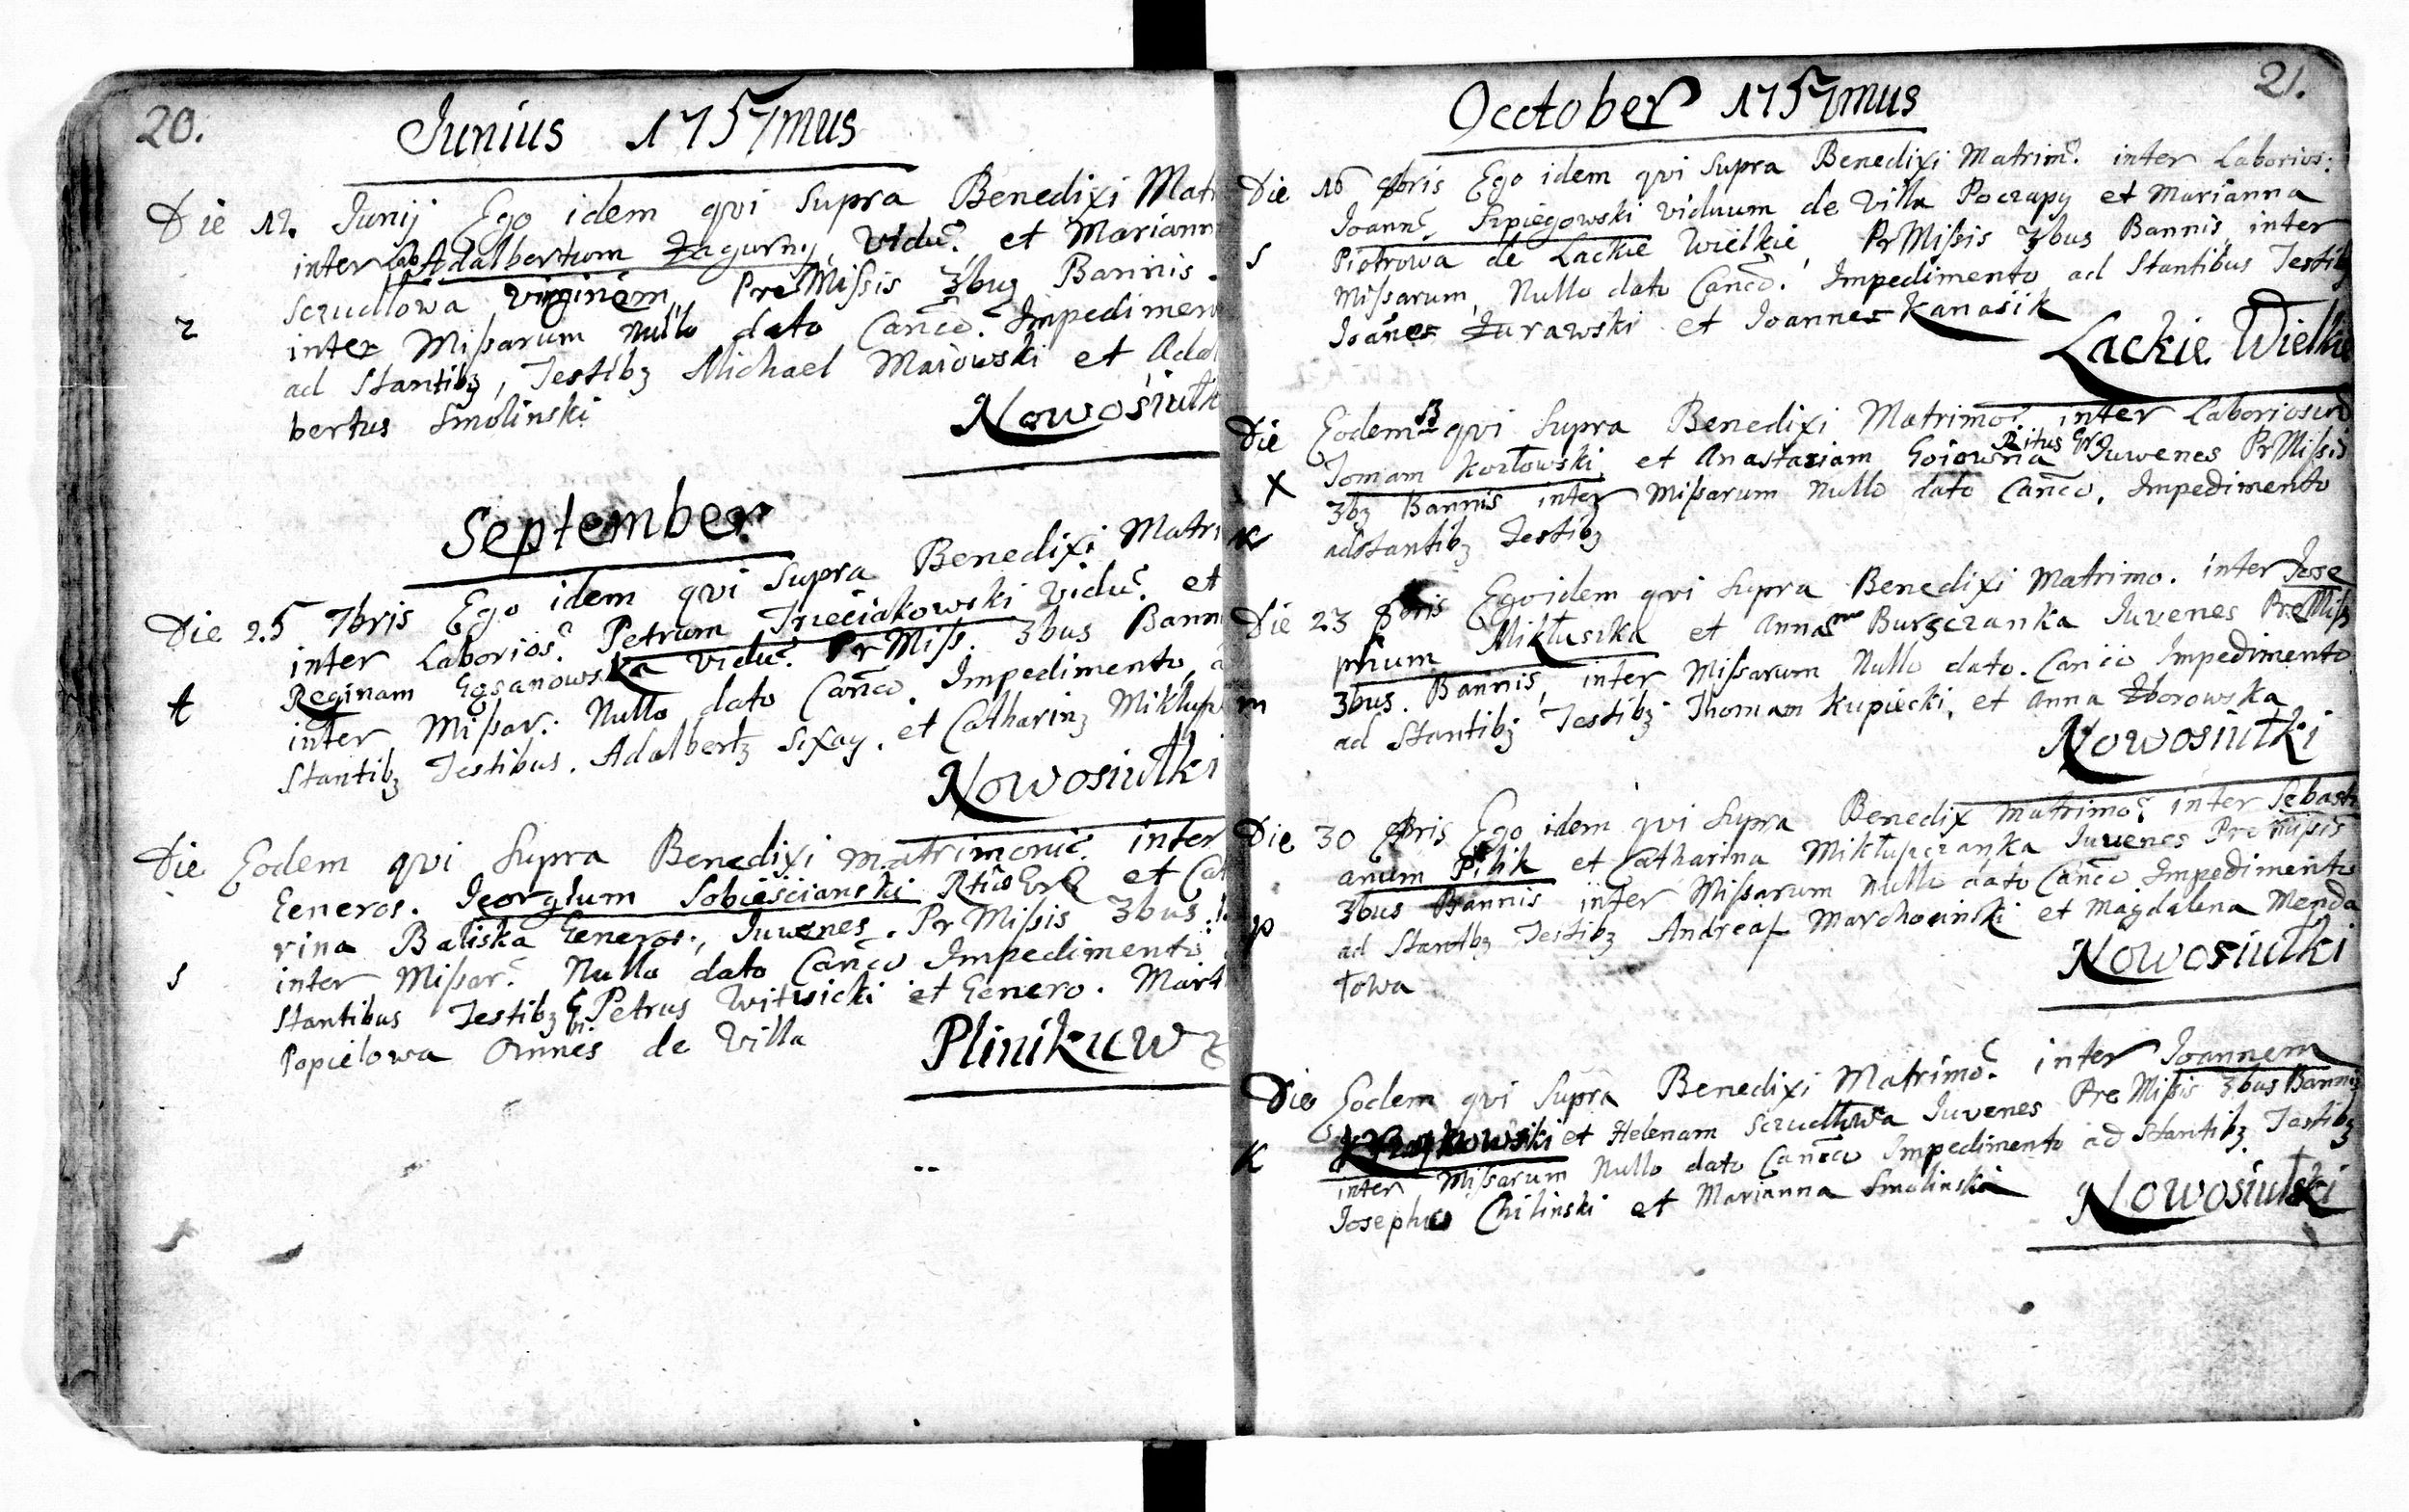 20.
Junius 1757mus
Die 12. Junij Ego idem qvi Supra Benedixi Matr
inter Lab Adalbertum Zagurny, Vidu. et Mariann
Sczudlowa Virginem, PreMissis 3bus Bannis.
2 inter Missarum Nullo dato Canco. Impedimen
ad Stantibz, Testibz Michael Maiowski et Adal
bertus Smolinski
Nowosiulk
September
Die 25 7bris Ego idem qvi Supra Benedixi Matri
inter Laborios. Petrum Trzeciakowski Vidu. et
Reginam Vidu. PrMiss. 3bus Bann
t inter Missar: Nullo dato Canco. Impedimento, a
Stantibz Testibus. Adalbertz et Catharinz Miklup
Nowosiulki
Die Eodem qvi Supra Benedixi matrimoniu. inter
Generos. Georgium Sobieścianski et Cat
rina Baliska Generos., Juvenes. PrMissis 3bus
s inter Missar. Nullo dato Canco Impedimento
Stantibus Testibz G Petrus Witwicki et Genero. Mart
Popielowa Omnes de Villa
Plinikuw
October 1757mus
21.
Die 16 8bris Ego idem qvi Supra Benedixi Matrim. inter Laborios:
Joann. Szpiegowski viduum de Villa Poczapy et Marianna
s Piotrowa de Lackie Wielkie, PrMissis 3bus Bannis inter
Missarum, Nullo dato Canco. Impedimento ad Stantibus Testib
Joanes Zurawski et Joannes Kanasik
Lackie Wielkie
Die Eodem qvi Supra Benedixi Matrimo. inter Laboriosum
Ritus Gr
x Tomam Kozłowski et Anastaziam Goiowna Juwenes PrMissis
3bz Bannis inter Missarum Nullo dato Canco. Impedimento
K adstantibz Testibz
Die 23 8bris Ego idem qvi Supra Benedixi Matrimo. inter Jose
phum Mikłuszka et Annam Burgczanka Juvenes PreMiss
m 3bus. Bannis, inter Missarum Nullo dato. Canco Impedimento
ad Stantibz Testibz Thomam Kupiecki, et Anna Zborowska
Nowosiułki
Die 30 8bris Ego idem qvi Supra Benedix Matrimo. inter Sebasti
anum Pilik et Catharina Mikłupczanka Juvenes PreMissis
p 3bus Bannis inter Missarum Nullo dato Canco Impedimento
ad Stantbz Testibz Andreas Marchocinski et Magdalena Menda
łowa
Nowosiulki
Die Eodem qvi Supra Benedixi Matrimo. inter Joannem
et Helenam Sczudłowa Juvenes PreMissis 3bus Bannis
K inter Missarum Nullo dato Canco Impedimento ad Stantibz Testibz
Josephus Chilinski et Marianna Smolinska
Nowosiułki